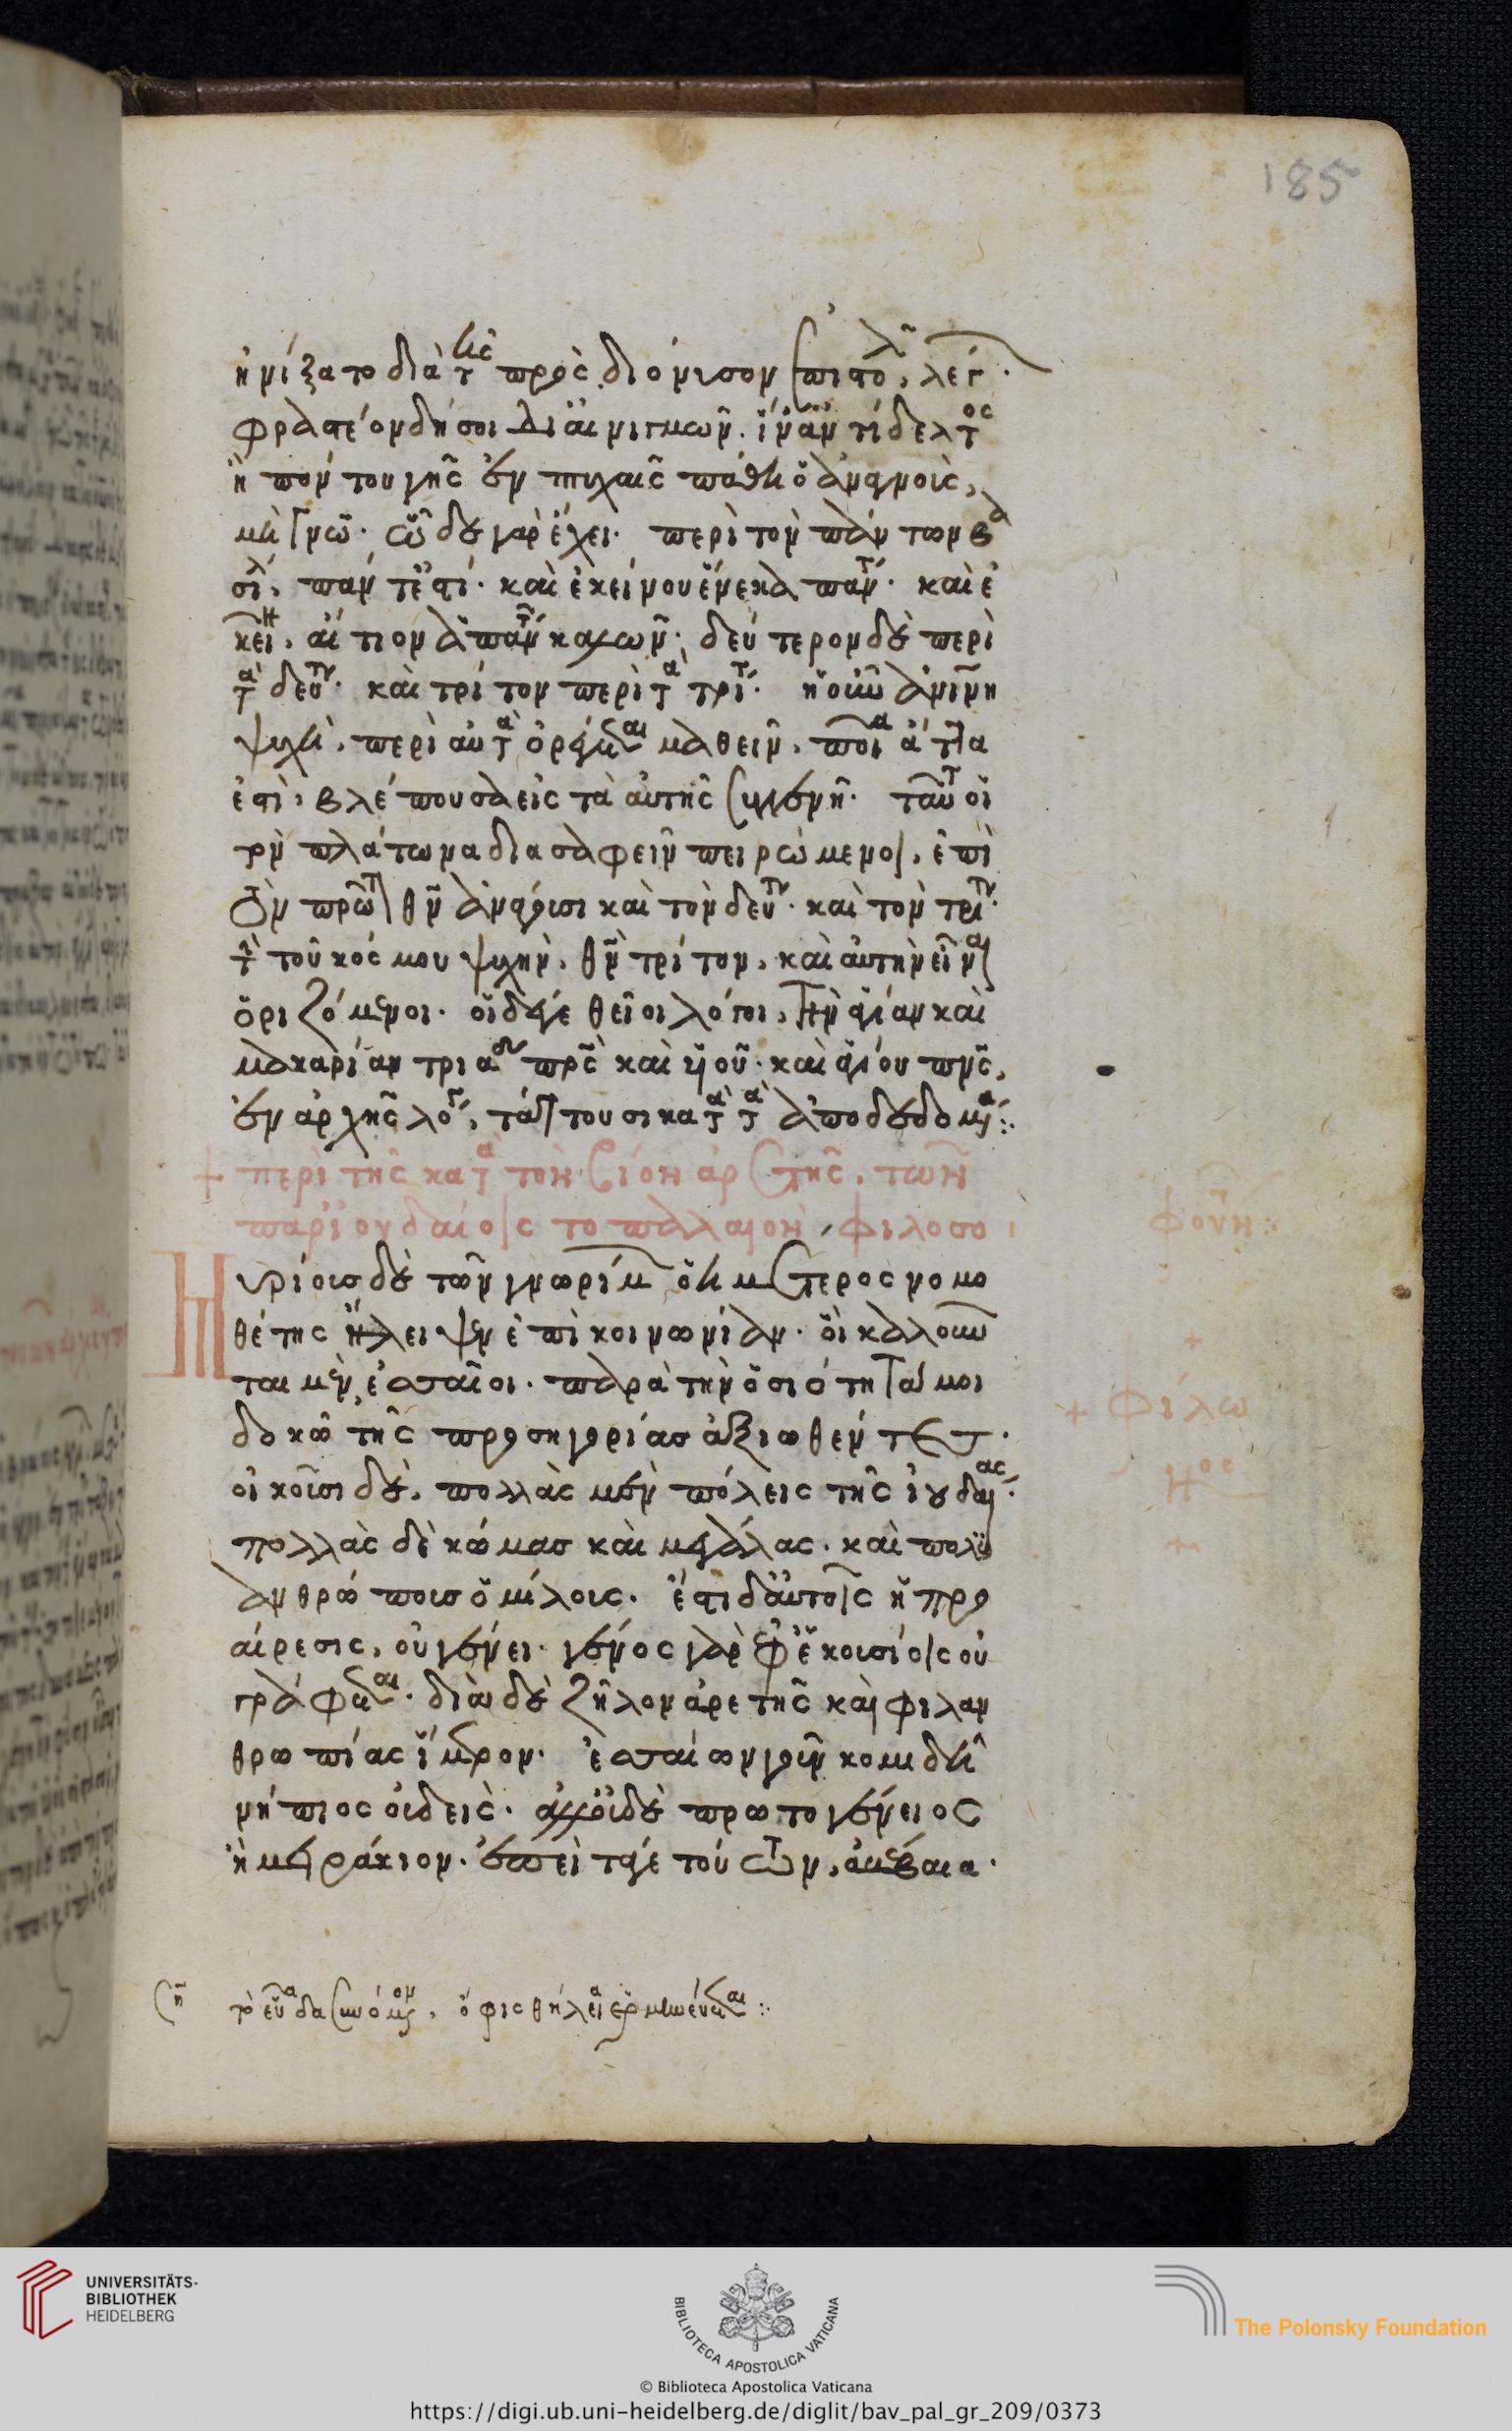 185
ἠνίξατο διὰ τῆς πρὸς διονύσιον ἐπιστολῆς, λέγ.
φραστέον δή σοι δι αἰνιγμῶν. ἵν ἄν τι δέλτος
ἢ πόντου ἢ γῆς ἐν πτυχαῖς πάθῃ ὁ ἀναγνοὺς,
μὴ γνῷ. ὧδε γὰρ ἔχει. περὶ τὸν πάντων βα
σιλ, πάντ ἐστί. καὶ ἐκείνου ἕνεκα πάντ. καὶ ἐ
κεῖν, αἴτιον ἁπάντ καλῶν. δεύτερον δὲ περὶ
τὰ δευτ. καὶ τρίτον περὶ τὰ τρίτ. ἡ οὖν ἀν
ψυχὴ, περὶ αὐτὰ ὀρέγεται μαθεῖν, ποῖα ἄττα
ἐστὶ, βλέπουσα εἰς τὰ αὐτῆς συγγενῆ. ταῦτ οἱ
τὸν πλάτωνα διασαφεῖν πειρώμενοι, ἐπὶ
τὸν πρῶτον θν ἀνάγουσι καὶ τὸν δευτ. καὶ τὸν τρίτ.
τὴν τοῦ κόσμου ψυχὴν, θν τρίτον, καὶ αὐτὴν εἶναι
ὁριζόμενοι. οἱ δέ γε θεῖοι λόγοι, τὴν ἁγίαν καὶ
μακαρίαν τριάδα πρς καὶ υἱοῦ. καὶ ἁγίου πνς,
ἐν ἀρχῆς λόγ, τάττουσι κατὰ τὰ ἀποδεδομένα:.
+ περὶ τῆς κατὰ τὸν βίον ἀρετῆς, τῶν
παρ ἰουδαίοις τὸ παλαιὸν, φιλοσο
φούντ:.
Μυρίους δὲ τῶν γνωρίμ ὁ ἡμέτερος νομο
θέτης ἤλειψεν ἐπὶ κοινωνίαν. οἳ καλοῦν
ται μὲν ἐσσαῖοι. παρὰ τὴν ὁσιότητά μοι
δοκῶ τῆς προσηγορίας ἀξιωθέντες.
οἰκοῦσι δὲ, πολλὰς μὲν πόλεις τῆς ἰουδαίας.
πολλὰς δὲ κώμας καὶ μεγάλας. καὶ πολυ
ανθρώπους ὁμίλους. ἔστι δ αὐτοῖς ἡ προ
αίρεσις, οὐ γένει. γένος γὰρ ἐφ ἑκουσίοις οὐ
γράφεται. διὰ δὲ ζῆλον ἀρετῆς καὶ φιλαν
θρωπίας ἵμερον. ἐσσαίων γοῦν κομιδῇ
νήπιος οὐδεὶς. ἀλλ οὐδὲ πρωτογένειος
ἢ μειράκιον. ἐπεὶ τά γε τούτων, ἀβέβαια.
+ φίλω
νος
+
ση τὸ εὔα δασυνόμενον, ὄφις θήλεια ἑρμηνεύεται:.
UNIVERSITÄTS-
BIBLIOTHEK
HEIDELBERG
BIBLIOTECA APOSTOLICA VATICANA
© Biblioteca Apostolica Vaticana
The Polonsky Foundation
https://digi.ub.uni-heidelberg.de/diglit/bav_pal_gr_209/0373